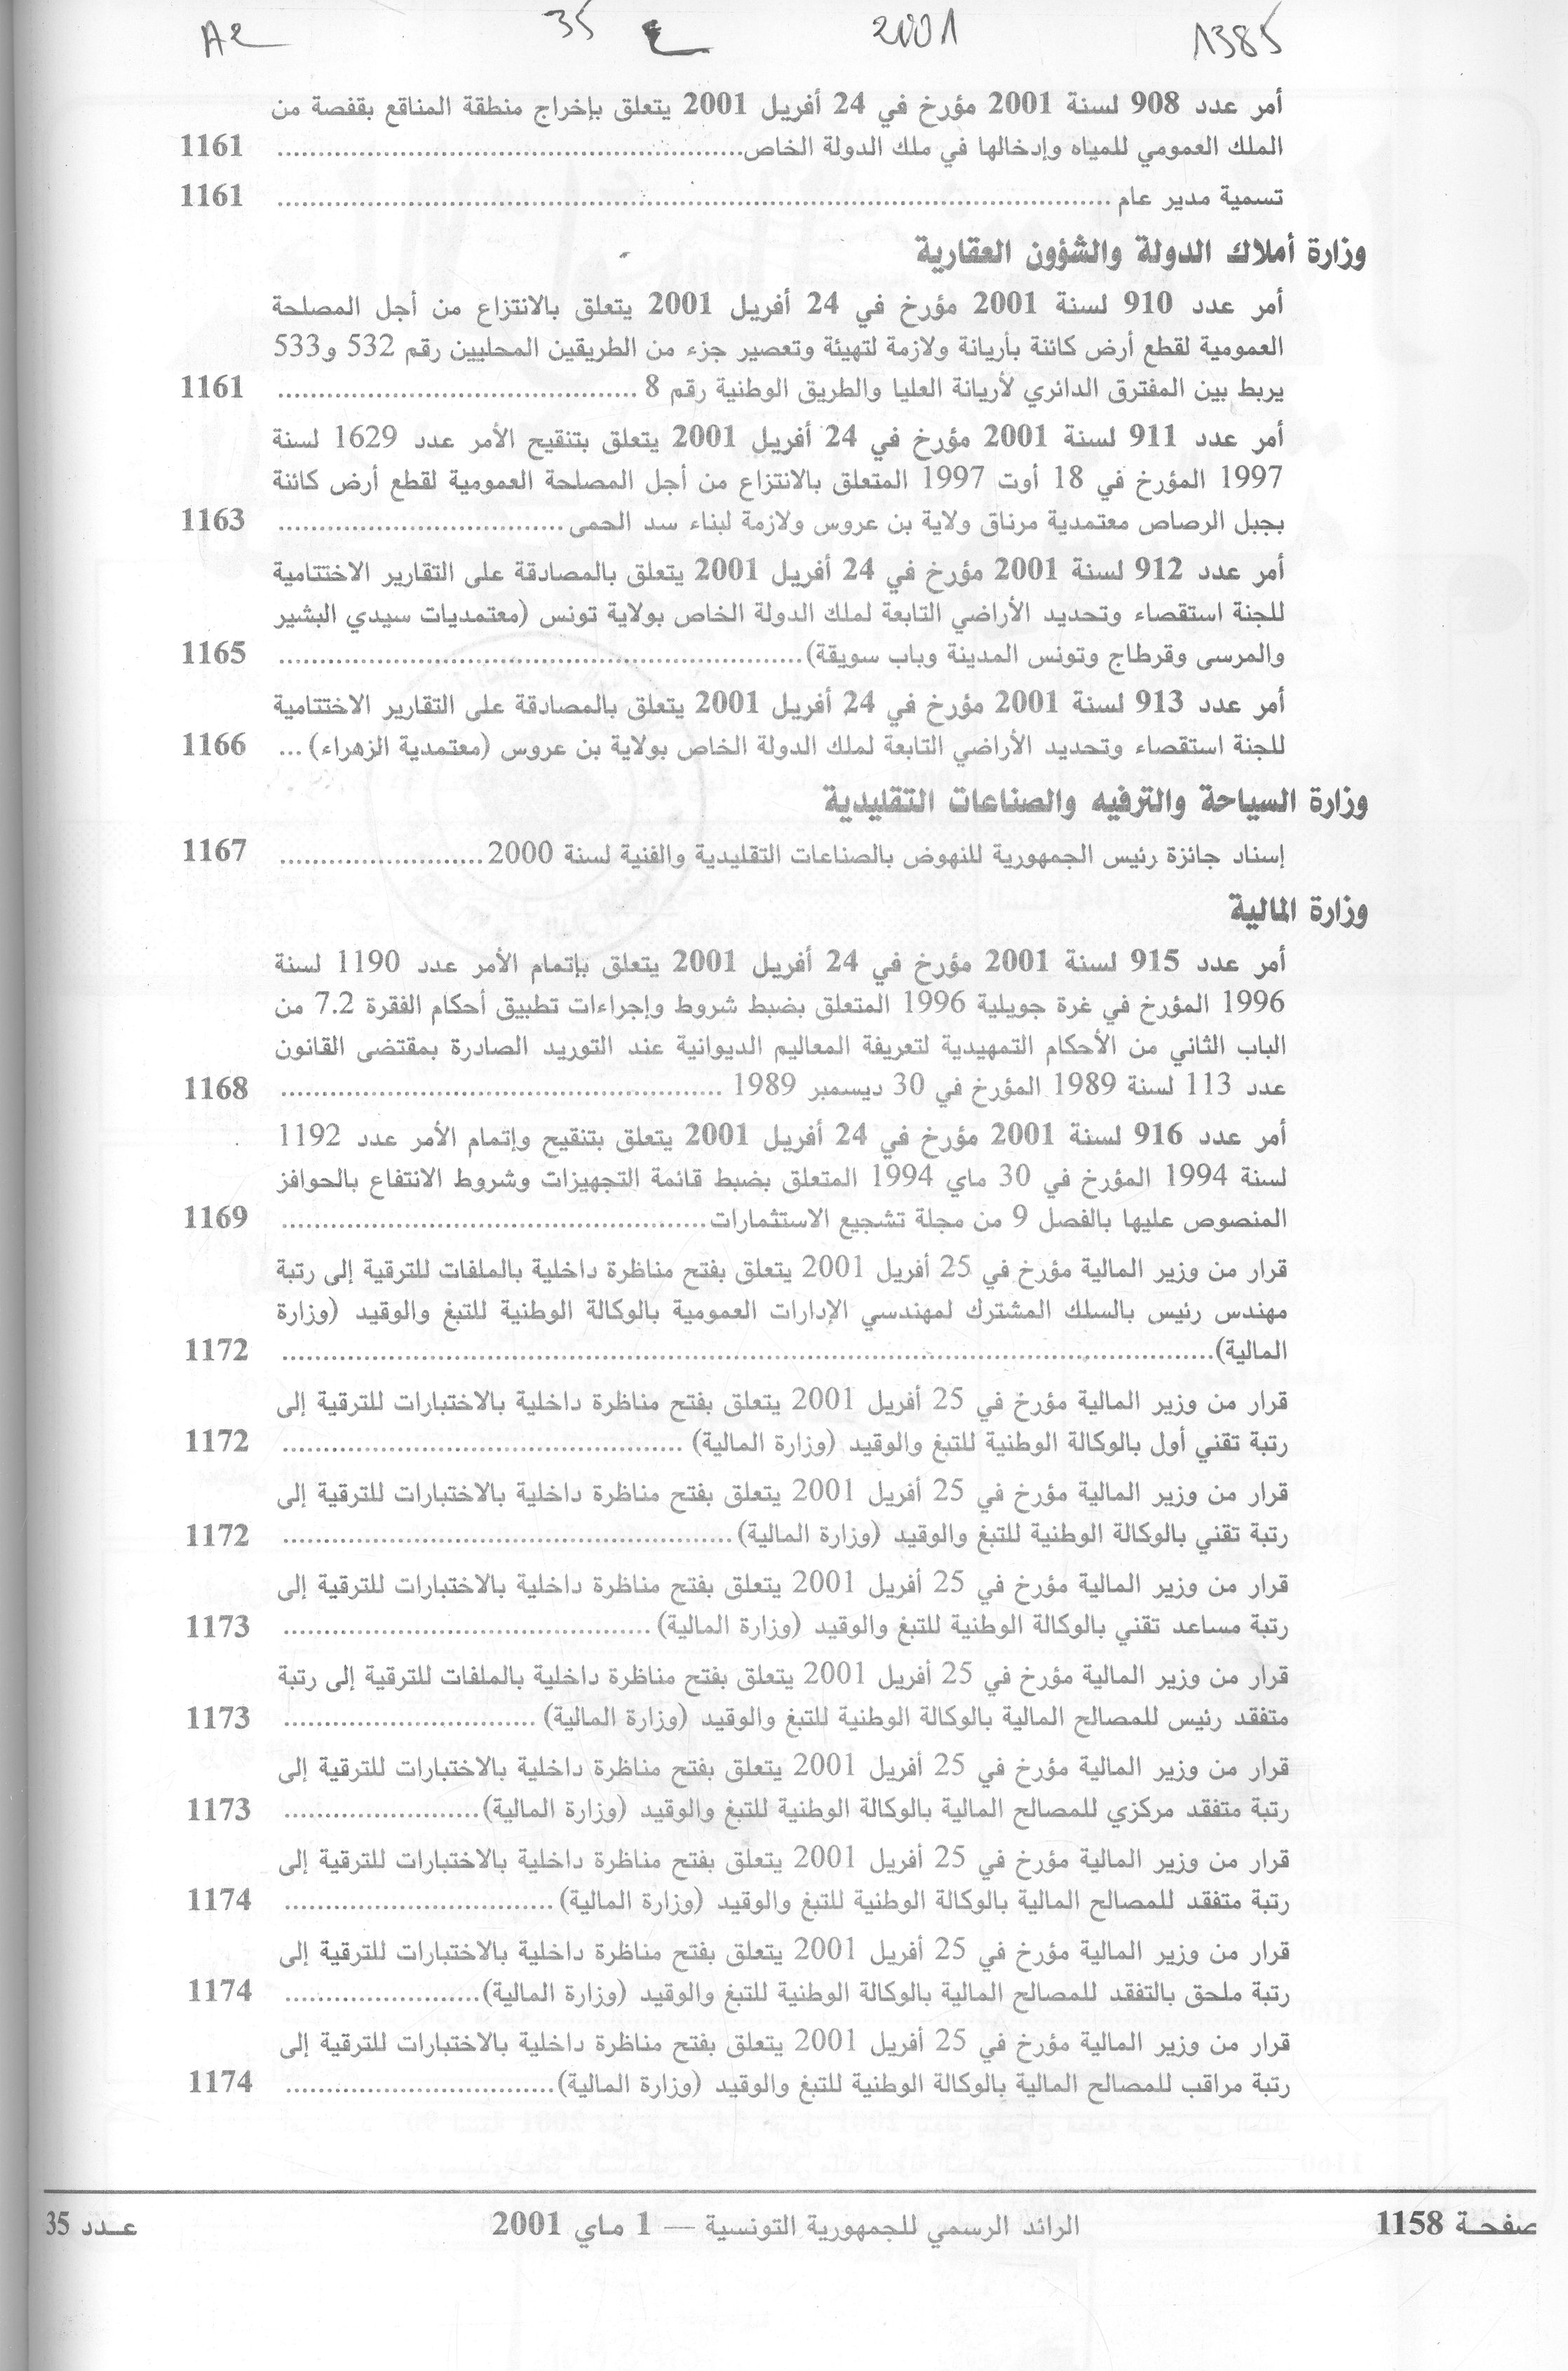 A2 35 ع 2001 1385
أمر عدد 908 لسنة 2001 مؤرخ في 24 أفريل 2001 يتعلق بإخراج منطقة المناقع بقفصة من
الملك العمومي للمياه وإدخالها في ملك الدولة الخاص........................................................ 1161
تسمية مدير عام ..................................................................................................... 1161
وزارة أملاك الدولة والشؤون العقارية
أمر عدد 910 لسنة 2001 مؤرخ في 24 أفريل 2001 يتعلق بالانتزاع من أجل المصلحة
العمومية لقطع أرض كائنة بأريانة ولازمة لتهيئة وتعصير جزء من الطريقين المحليين رقم 532 و533
يربط بين المفترق الدائري لأريانة العليا والطريق الوطنية رقم 8 ........................................... 1161
أمر عدد 911 لسنة 2001 مؤرخ في 24 أفريل 2001 يتعلق بتنقيح الأمر عدد 1629 لسنة
1997 المؤرخ في 18 أوت 1997 المتعلق بالانتزاع من أجل المصلحة العمومية لقطع أرض كائنة
بجبل الرصاص معتمدية مرناق ولاية بن عروس ولازمة لبناء سد الحمى................................... 1163
أمر عدد 912 لسنة 2001 مؤرخ في 24 أفريل 2001 يتعلق بالمصادقة على التقارير الاختتامية
للجنة استقصاء وتحديد الأراضي التابعة لملك الدولة الخاص بولاية تونس (معتمديات سيدي البشير
والمرسى وقرطاج وتونس المدينة وباب سويقة)............................................................... 1165
أمر عدد 913 لسنة 2001 مؤرخ في 24 أفريل 2001 يتعلق بالمصادقة على التقارير الاختتامية
للجنة استقصاء وتحديد الأراضي التابعة لملك الدولة الخاص بولاية بن عروس (معتمدية الزهراء) ... 1166
وزارة السياحة والترفيه والصناعات التقليدية
إسناد جائزة رئيس الجمهورية للنهوض بالصناعات التقليدية والفنية لسنة 2000......................... 1167
وزارة المالية
أمر عدد 915 لسنة 2001 مؤرخ في 24 أفريل 2001 يتعلق بإتمام الأمر عدد 1190 لسنة
1996 المؤرخ في غرة جويلية 1996 المتعلق بضبط شروط وإجراءات تطبيق أحكام الفقرة 7.2 من
الباب الثاني من الأحكام التمهيدية لتعريفة المعاليم الديوانية عند التوريد الصادرة بمقتضى القانون
عدد 113 لسنة 1989 المؤرخ في 30 ديسمبر 1989 ..................................................... 1168
أمر عدد 916 لسنة 2001 مؤرخ في 24 أفريل 2001 يتعلق بتنقيح وإتمام الأمر عدد 1192
لسنة 1994 المؤرخ في 30 ماي 1994 المتعلق بضبط قائمة التجهيزات وشروط الانتفاع بالحوافز
المنصوص عليها بالفصل 9 من مجلة تشجيع الاستثمارات................................................... 1169
قرار من وزير المالية مؤرخ في 25 أفريل 2001 يتعلق بفتح مناظرة داخلية بالملفات للترقية إلى رتبة
مهندس رئيس بالسلك المشترك لمهندسي الإدارات العمومية بالوكالة الوطنية للتبغ والوقيد (وزارة
المالية)................................................................................................................ 1172
قرار من وزير المالية مؤرخ في 25 أفريل 2001 يتعلق بفتح مناظرة داخلية بالاختبارات للترقية إلى
رتبة تقني أول بالوكالة الوطنية للتبغ والوقيد (وزارة المالية) ................................................ 1172
قرار من وزير المالية مؤرخ في 25 أفريل 2001 يتعلق بفتح مناظرة داخلية بالاختبارات للترقية إلى
رتبة تقني بالوكالة الوطنية للتبغ والوقيد (وزارة المالية)...................................................... 1172
قرار من وزير المالية مؤرخ في 25 أفريل 2001 يتعلق بفتح مناظرة داخلية بالاختبارات للترقية إلى
رتبة مساعد تقني بالوكالة الوطنية للتبغ والوقيد (وزارة المالية)............................................ 1173
قرار من وزير المالية مؤرخ في 25 أفريل 2001 يتعلق بفتح مناظرة داخلية بالملفات للترقية إلى رتبة
متفقد رئيس للمصالح المالية بالوكالة الوطنية للتبغ والوقيد (وزارة المالية) .............................. 1173
قرار من وزير المالية مؤرخ في 25 أفريل 2001 يتعلق بفتح مناظرة داخلية بالاختبارات للترقية إلى
رتبة متفقد مركزي للمصالح المالية بالوكالة الوطنية للتبغ والوقيد (وزارة المالية)........................ 1173
قرار من وزير المالية مؤرخ في 25 أفريل 2001 يتعلق بفتح مناظرة داخلية بالاختبارات للترقية إلى
رتبة متفقد للمصالح المالية بالوكالة الوطنية للتبغ والوقيد (وزارة المالية)................................. 1174
قرار من وزير المالية مؤرخ في 25 أفريل 2001 يتعلق بفتح مناظرة داخلية بالاختبارات للترقية إلى
رتبة ملحق بالتفقد للمصالح المالية بالوكالة الوطنية للتبغ والوقيد (وزارة المالية)........................ 1174
قرار من وزير المالية مؤرخ في 25 أفريل 2001 يتعلق بفتح مناظرة داخلية بالاختبارات للترقية إلى
رتبة مراقب للمصالح المالية بالوكالة الوطنية للتبغ والوقيد (وزارة المالية)................................. 1174
صفحة 1158 الرائد الرسمي للجمهورية التونسية — 1 ماي 2001 عـدد 35